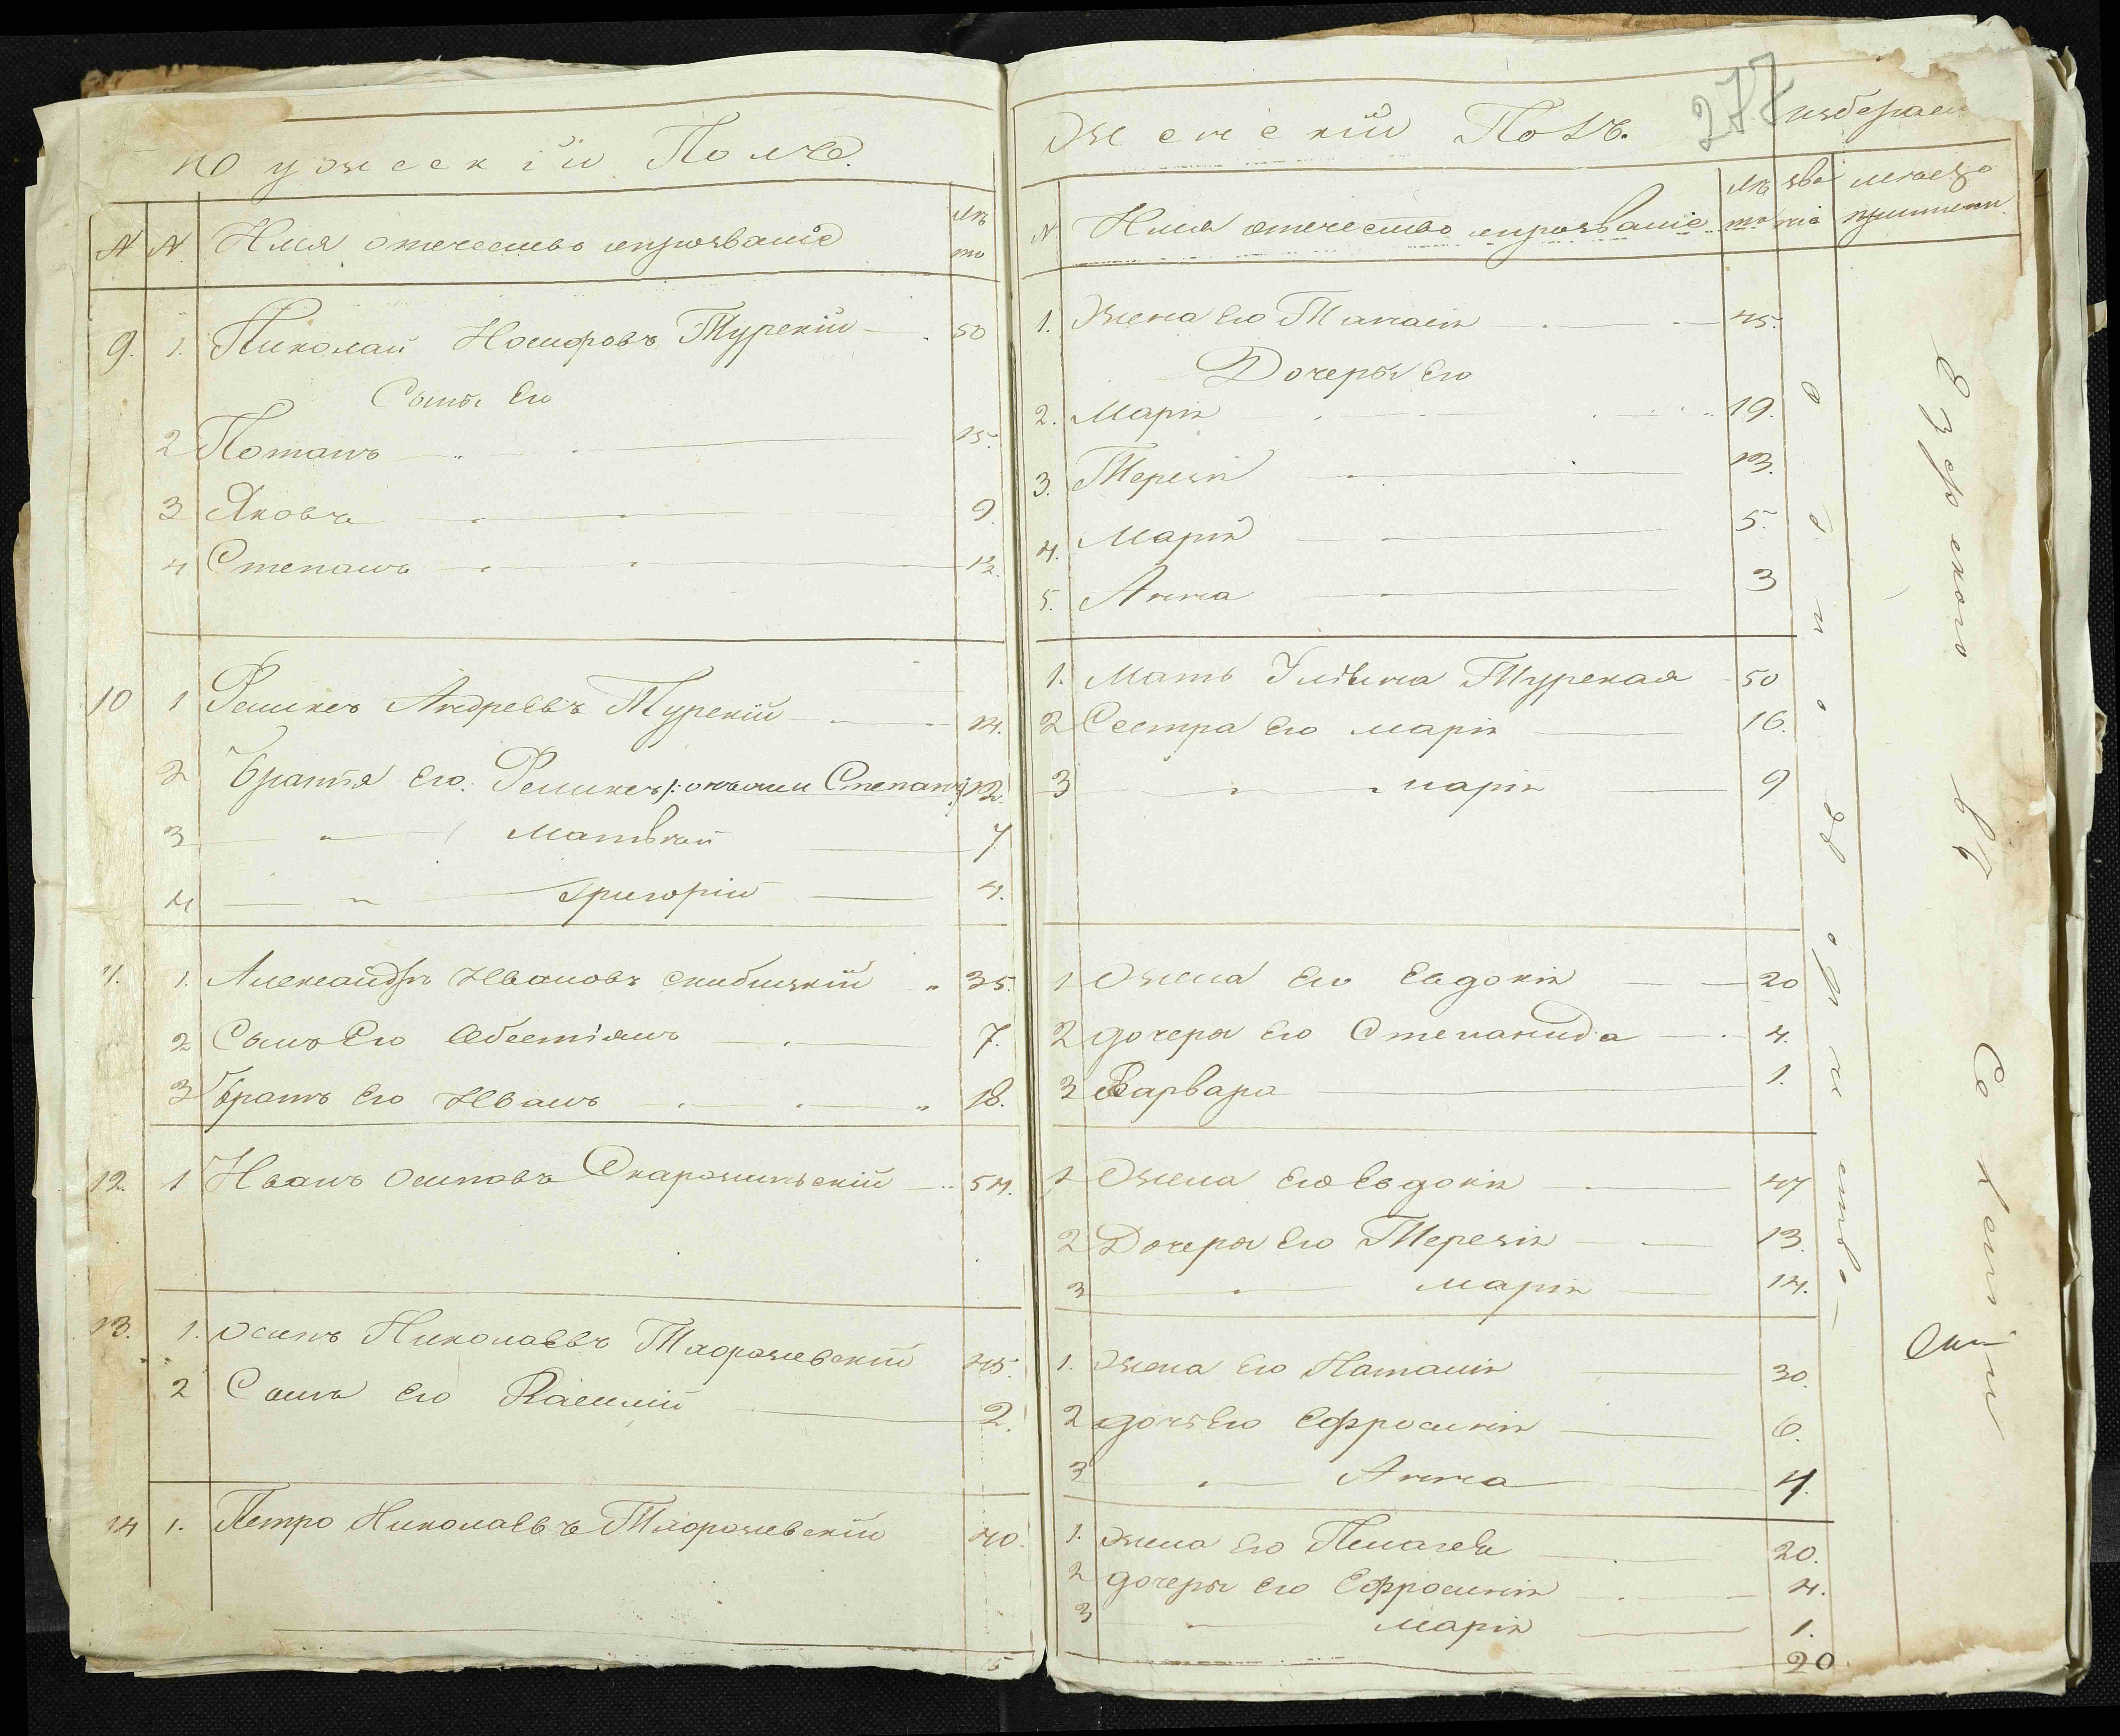 Мужескій Полъ.
N N Имя отечество ипрозваніе лѣто
9. 1. Николай Іосифовъ Турскій 50
Сыны Его
2 Потапъ 15.
3 Яковъ 9.
4 Степанъ 12.
10 1 Феликсъ Андреевъ Турскій 14.
2 Братья Его: Феликсъ /: онъжеи Степанъ 12.
3 " Матвѣй 7
4 " Григорій 4.
11. 1. Александръ Ивановъ скибицкій 35.
2 Сынъ Его Себестіянъ 7.
3 Братъ Его Иванъ 18.
12. 1 Иванъ Осиповъ Скаржинскій 54.
13. 1. Осипъ Николаевъ Тхоржевскій 45.
2 Сынъ Его Василій 2.
14 1. Петро Николаевъ Тхоржевскій 40.
15
277
Женскій Полъ. избераем
N Имя отечество ипрозваніе лѣто званіе мѣсто
1. Жена Его Талаія 45.
Дочеры Его
2. Марія 19.
3. Терезія 13.
4. Марія 5.
5. Анна 3
1. Мать Уліяна Турская 50
2 Сестра Его марія 16.
3 " марія 9
1 Жена Его Евдокія 20
2 дочеры Его Степанида 4.
3 Варвара 1.
1 Жена Его Евдокія 47
2 Дочеры Его Терезія 13.
3 " марія 14.
1. Жена Его Наталія 30.
2 дочьЕго Ефросинія 6.
3 " Анна 4.
1. Жена Его Пелагея 20.
2 дочеры Его Ефросинія 4.
3 " марія 1.
20
однодворчество
въ Селеніи